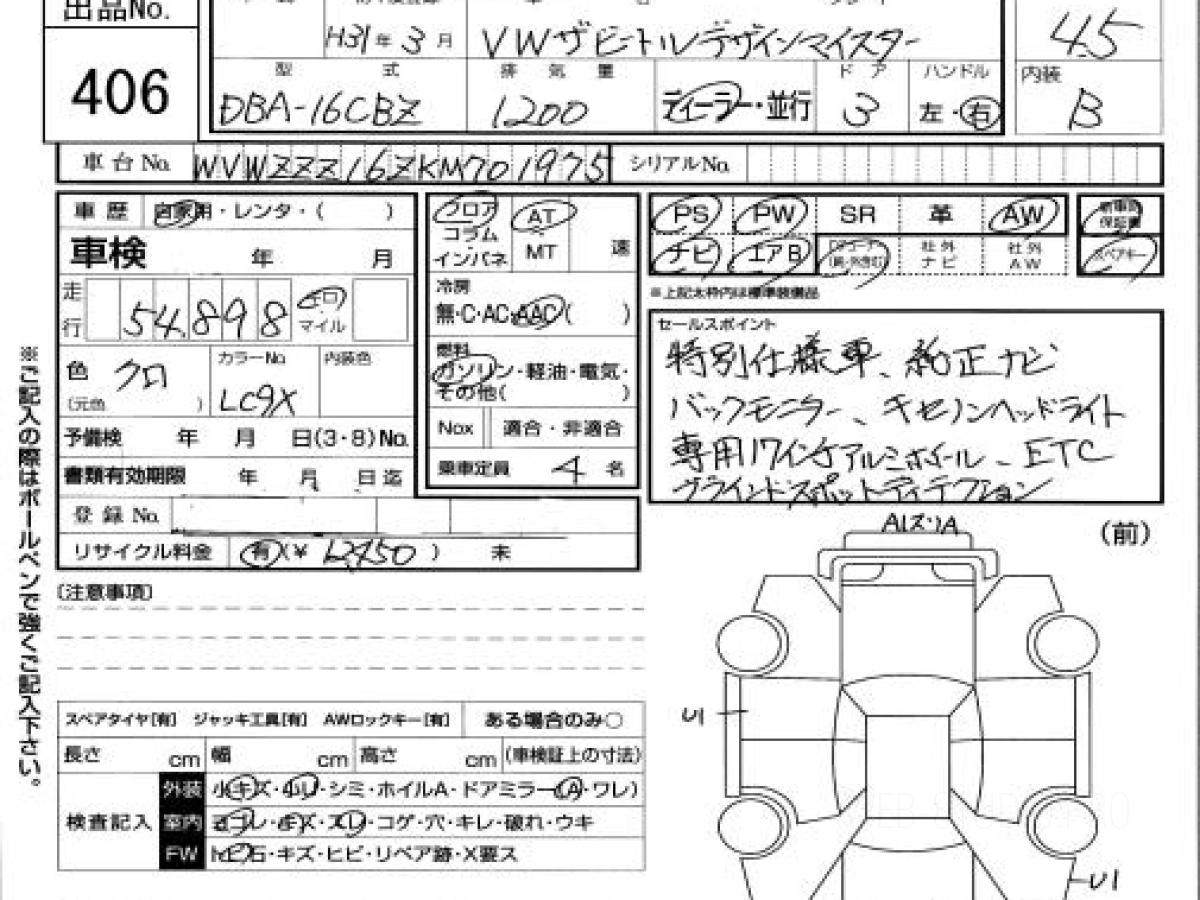 出品No.
406
H31年 3月 VWザビートルデザインマイスター 4.5
型 式 排 気 量 ドア ハンドル 内装
DBA-16CBZ 1200 ディーラー・並行 3 左・右 B
車台No. WVWZZZ16ZKM701975 シリアルNo.
車歴 自家用・レンタ・( )
車検 年 月
走行 54,898 キロ マイル
色 クロ (元色 ) カラーNo LC9X 内装色
予備検 年 月 日(3・8)No.
書類有効期限 年 月 日迄
登録No.
リサイクル料金 有(¥ 12,450 ) 未
フロア コラム インパネ AT MT 速
冷房
無・C・AC・AAC( )
燃料
ガソリン・軽油・電気・
その他( )
Nox 適合・非適合
乗車定員 4 名
PS PW SR 革 AW 保証書
ナビ エアB 社外ナビ 社外AW スペアキー
※上記太枠内は標準装備品
セールスポイント
特別仕様車、純正ナビ
バックモニター、キセノンヘッドライト
専用17インチアルミホイール、ETC
ブラインドスポットディテクション
※ご記入の際はボールペンで強くご記入下さい。
〔注意事項〕
A1ズリA
(前)
U1
U1
スペアタイヤ[有] ジャッキ工具[有] AWロックキー[有] ある場合のみ○
長さ cm 幅 cm 高さ cm (車検証上の寸法)
検査記入
外装 小キズ・小U・シミ・ホイルA・ドアミラー(A・ワレ)
室内 ヨゴレ・キズ・スレ・コゲ・穴・キレ・破れ・ウキ
FW トビ石・キズ・ヒビ・リペア跡・X要ス